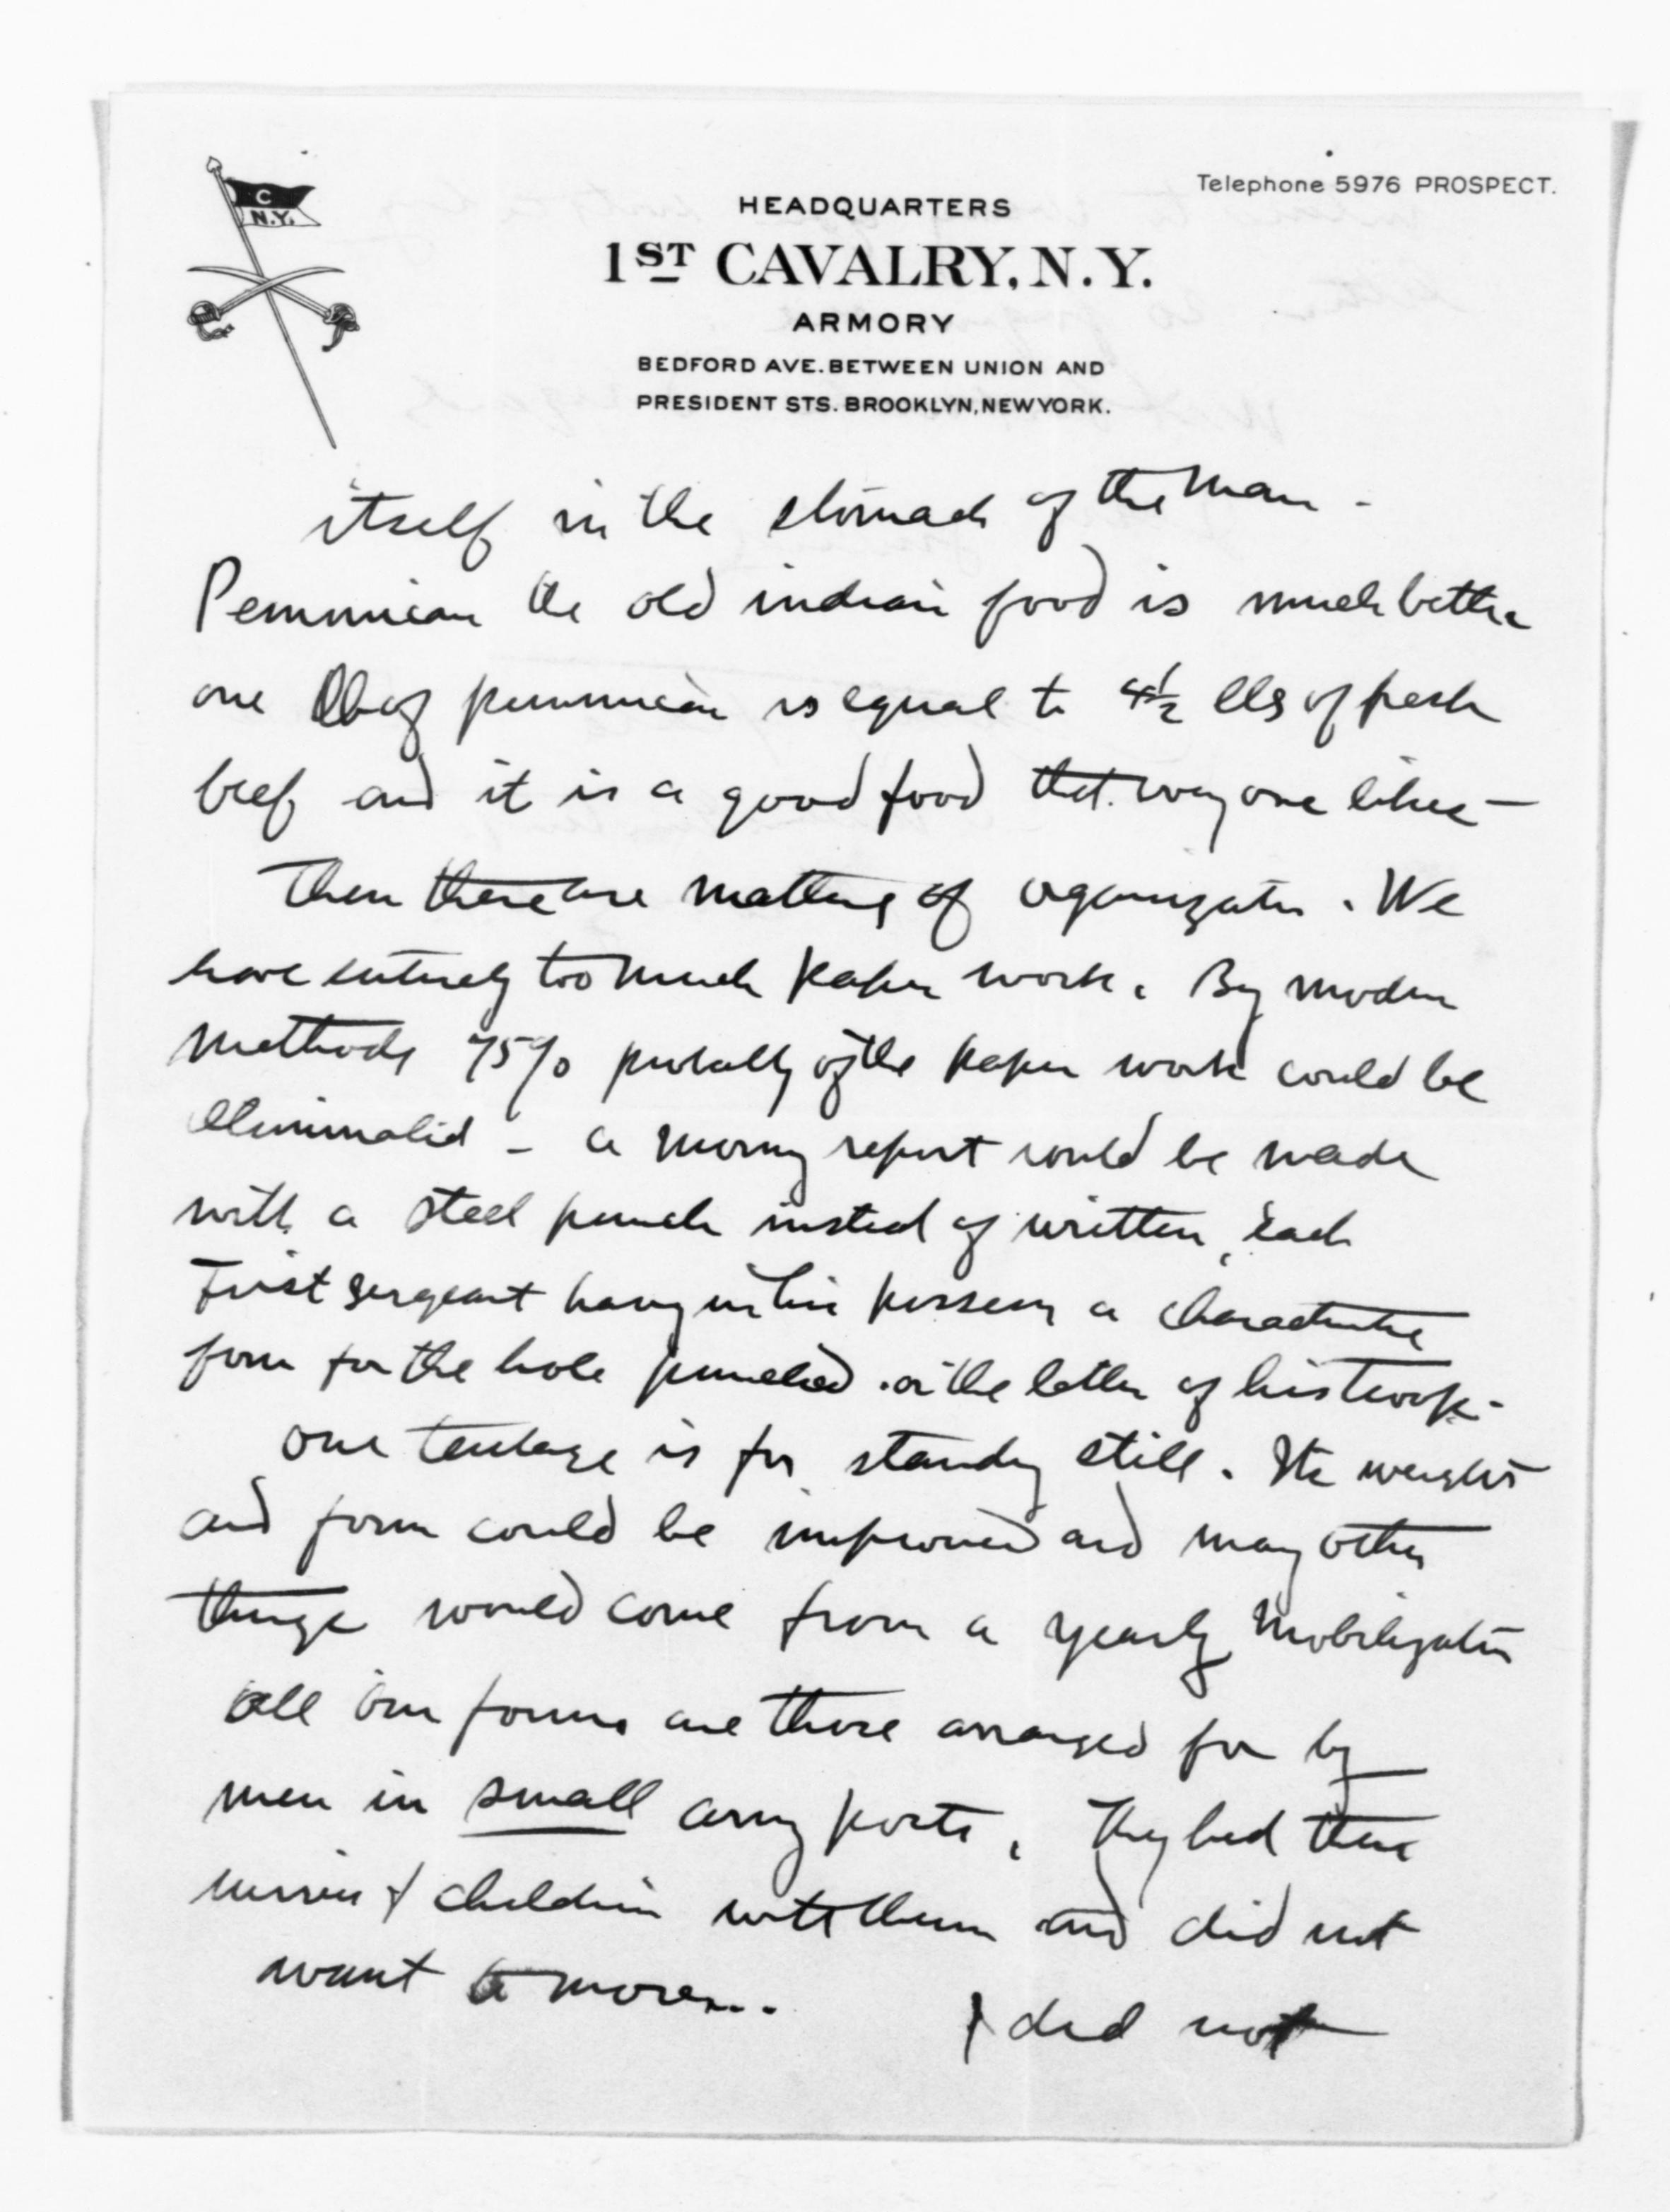 C
N.Y.
Telephone 5976 PROSPECT.
HEADQUARTERS
1ST CAVALRY, N.Y.
ARMORY
BEDFORD AVE. BETWEEN UNION AND
PRESIDENT STS. BROOKLYN, NEW YORK.
itself in the stomach of the man -
Pemmican the old indian food is much better
one lb of pemmican is equal to 4½ lbs of fresh
beef and it is a good food that every one likes -
Then there are matters of organization. We
have entirely too much paper work. By modern
methods 75% probably of the paper work could be
eliminated - a morning report could be made
with a steel punch instead of written, each
First sergeant having in his possession a characteristic
form for the hole punched or the letter of his troop.
Our tentage is for standing still. Its weight
and form could be improved and many other
things would come from a yearly mobilization
all our forms are those arranged for by
men in small army posts. They had their
& children with them and did not
want to move.
& did not